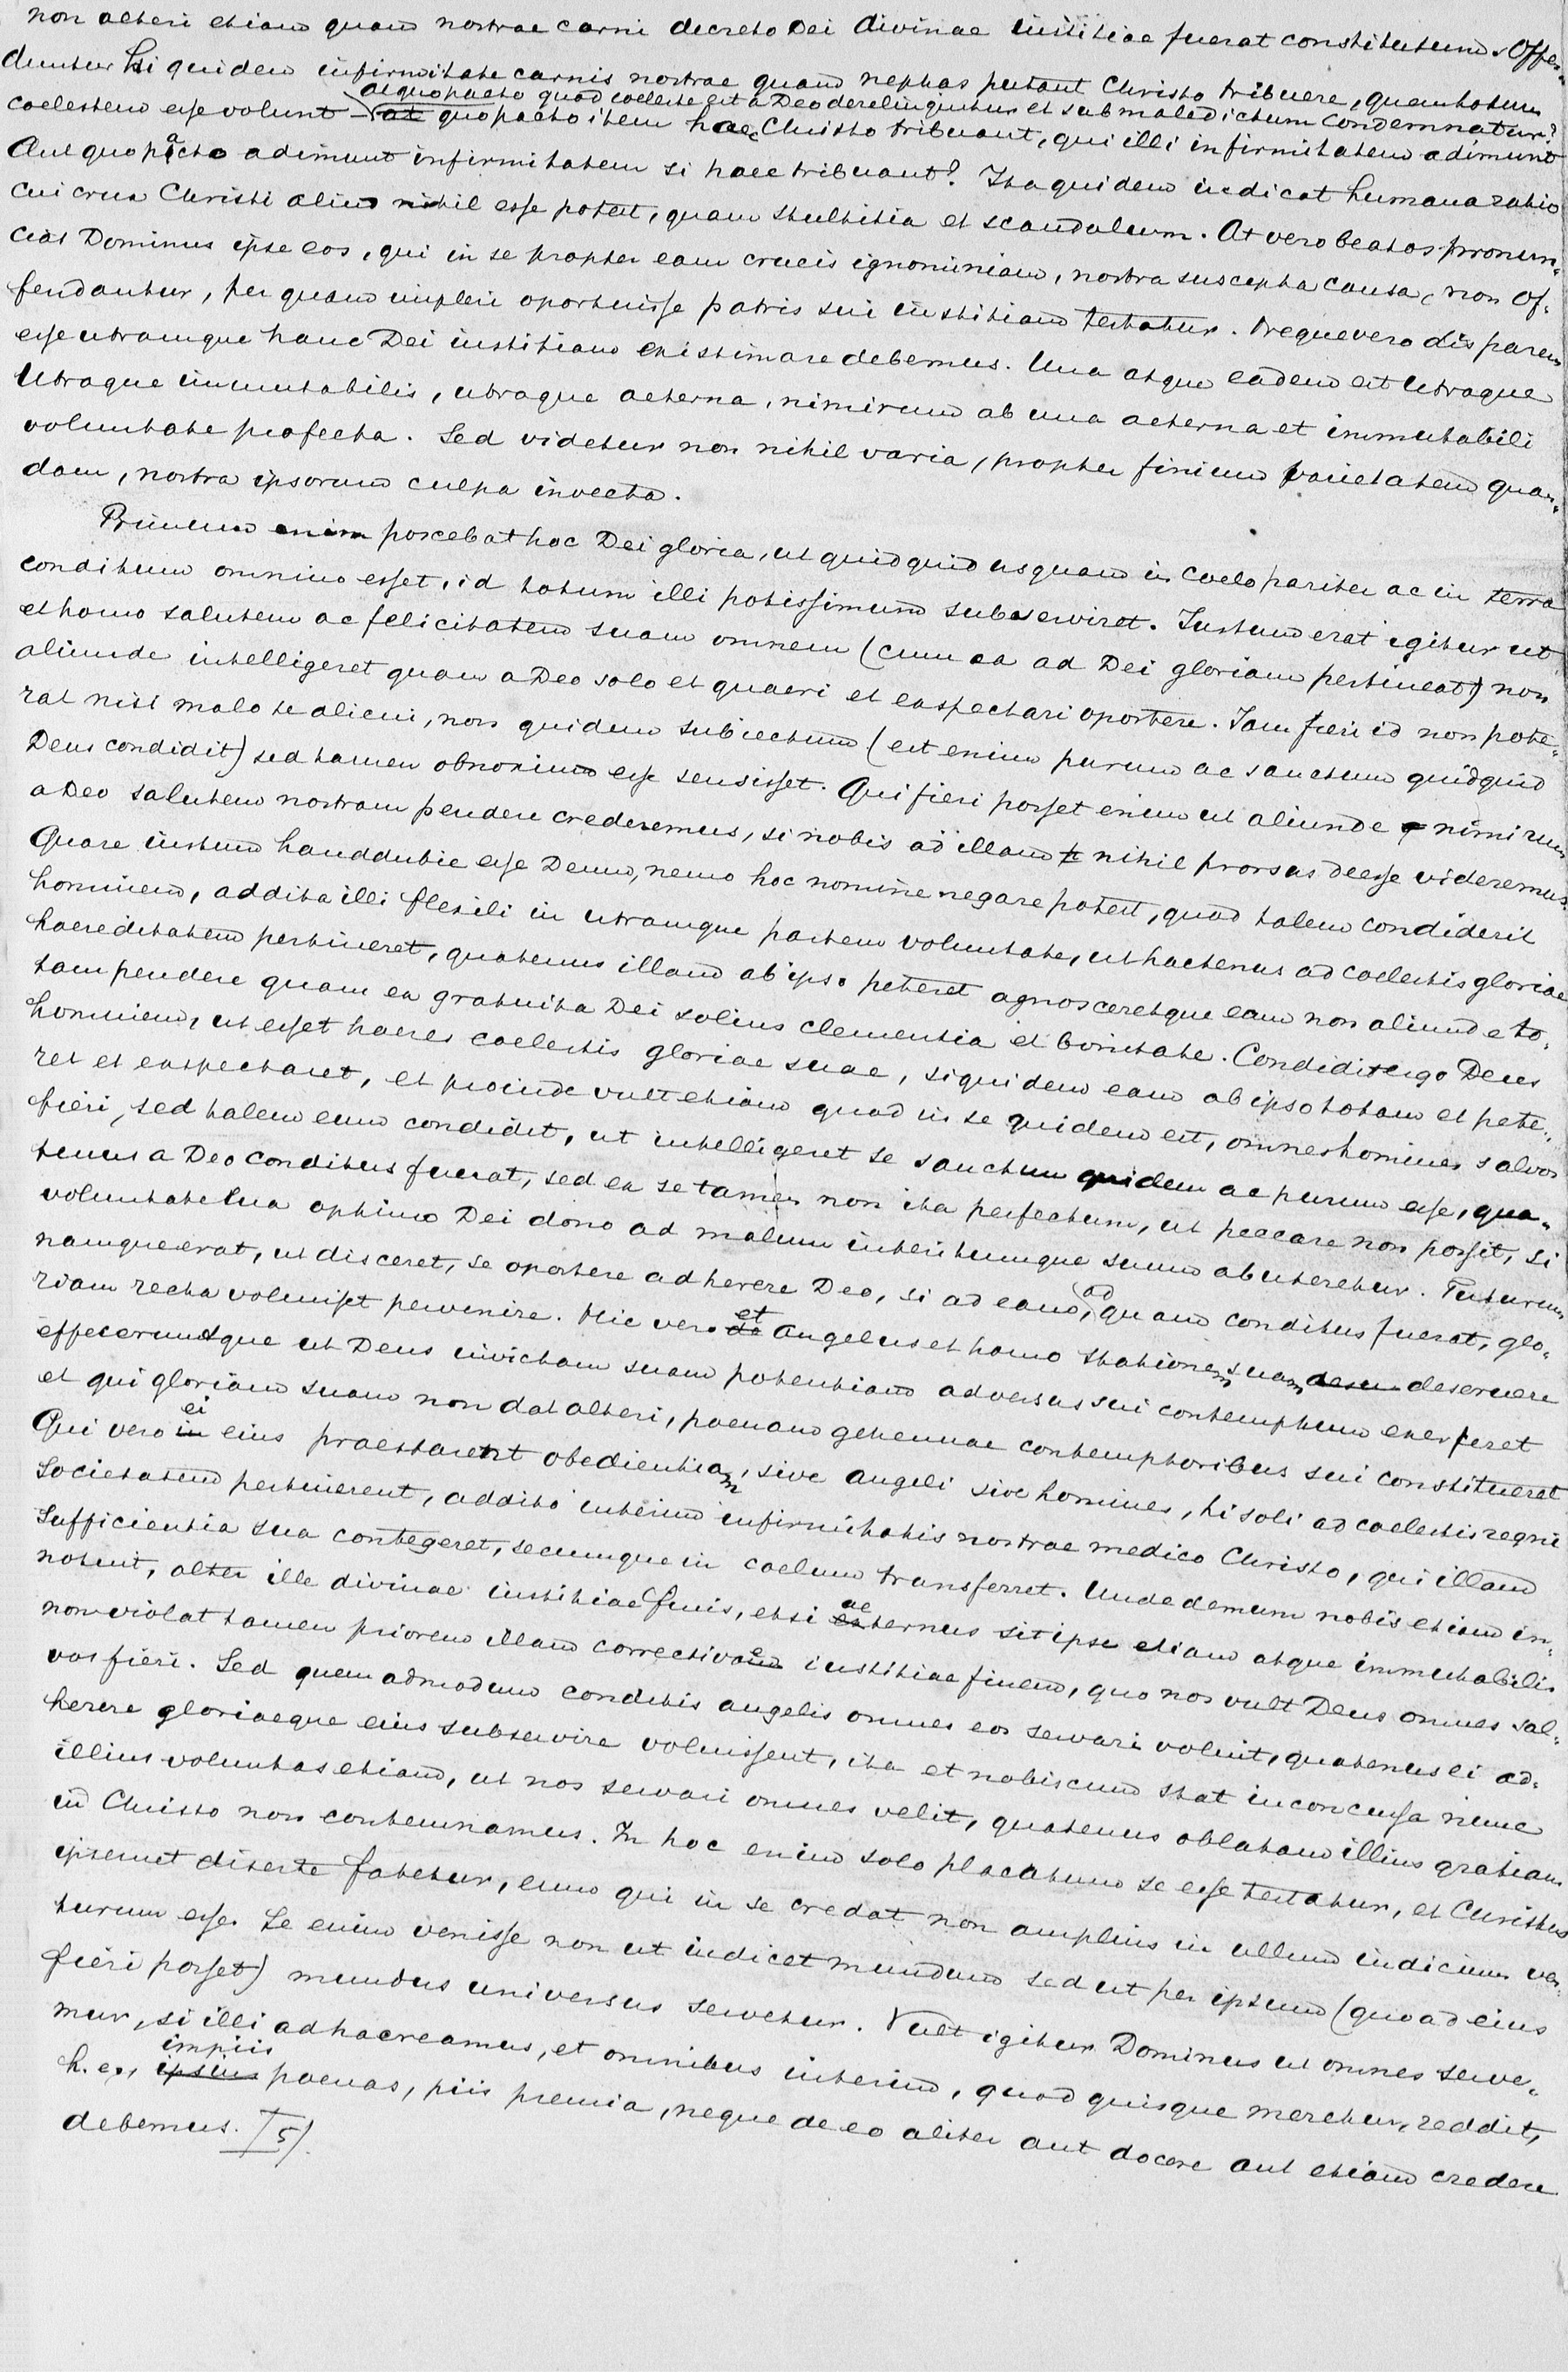 non alteri etiam quam nostrae carni decreto Dei divinae iustitiae fuerat constitutum. Offen-
duntur hi quidem infirmitate carnis nostrae quam nephas putant Christo tribuere, quem totum
at quo pacto quod coeleste est a Deo derelinquitur et sub maledictum condemnatur?
coelestem esse volunt – at quo pacto item haec Christo tribuant, qui illi infirmitatem adimunt
Aut quo pacto adimunt infirmitatem si haec tribuant? Ita quidem iudicat humana ratio
cui crux Christi aliud nihil esse potest, quam stultitia et scandalum. At vero beatos pronun-
ciat Dominus ipse eos, qui in se propter eam crucis ignominiam, nostra suscepta causa, non of-
fendantur, per quam impleri oportuisse patris sui iustitiam testatur. Neque vero disparem
esse utramque hanc Dei iustitiam existimare debemus. Una atque eadem est utraque
Utraque immutabilis, utraque aeterna, nimirum ab una aeterna et immutabili
voluntate profecta. Sed videtur non nihil varia, propter finium varietatem quan-
dam, nostra ipsorum culpa invecta.
Primum enim poscebat hoc Dei gloria, ut quidquid usquam in coelo pariter ac in terra
conditum omnino esset, id totum illi potissimum subserviret. Iustum erat igitur ut
et homo salutem ac felicitatem suam omnem (cum ea ad Dei gloriam pertineat) non
aliunde intelligeret quam a Deo solo et quaeri et expectari oportere. Iam fieri id non pote-
rat nisi malo se alicui, non quidem subiectum (est enim purum ac sanctum quidquid
Deus condidit) sed tamen obnoxium esse sensisset. Qui fieri posset enim ut aliunde nimirum
a Deo salutem nostram pendere crederemus, si nobis ad illam nihil prorsus deesse videremus.
Quare iustum hauddubie esse Deum, nemo hoc nomine negare potest, quod talem condiderit
hominem, addita illi flexili in utramque partem voluntate, ut hactenus ad coelestis gloriae
haereditatem pertineret, quatenus illam ab ipso peteret agnosceretque eam non aliunde to-
tam pendere quam ex gratuita Dei solius clementia et bonitate. Condidit ergo Deus
hominem, ut esset haeres coelestis gloriae suae, siquidem eam ab ipso totam et pete-
ret et expectaret, et proinde vult etiam quod in se quidem est, omnes homines salvos
fieri, sed talem eum condidit, ut intelligeret se sanctum quidem ac purum esse, qua-
tenus a Deo conditus fuerat, sed ex se tamen non ita perfectum, ut peccare non possit, si
voluntate sua optimo Dei dono ad malum interitumque suum abuteretur. Futurum
namque erat, ut disceret, se oportere adherere Deo, si ad eam, ad quam conditus fuerat, glo-
riam recta voluisset pervenire. Hic vero et Angelus et homo stationem suam deseruere
effeceruntque ut Deus invictam suam potentiam adversus sui contemptum exerceret
et qui gloriam suam non dat alteri, poenam gehennae contemptoribus sui constitueret
Qui vero ei eius praestarent obedientiam, sive angeli sive homines, hi soli ad coelestis regni
societatem pertinerent, addito interim infirmitatis nostrae medico Christo, qui illam
sufficientia sua contegeret, secumque in coelum transferret. Unde demum nobis etiam in-
notuit, alter ille divinae iustitiae finis, etsi aeternus sit ipse etiam atque immutabilis
non violat tamen priorem illam correctivae iustitiae finem, quo nos vult Deus omnes sal-
vos fieri. Sed quemadmodum conditis angelis omnes eos servari voluit, quatenus ei ad-
herere gloriaeque eius subservire voluissent, ita et nobiscum stat inconcussa nunc
illius voluntas etiam, ut nos servari omnes velit, quatenus oblatam illius gratiam
in Christo non contemnamus. In hoc enim solo placatum se esse testatur, et Christus
ipsemet diserte fatetur, eum qui in se credat non amplius in ullum iudicium ven-
turum esse. Se enim venisse non ut iudicet mundum sed ut per ipsum (quoad eius
fieri posset) mundus universus servetur. Vult igitur Dominus ut omnes serve-
mur, si illi adhaereamus, et omnibus interim, quod quisque meretur, reddit,
h. e., impiis poenas, piis premia, neque de eo aliter aut docere aut etiam credere
debemus. 5)